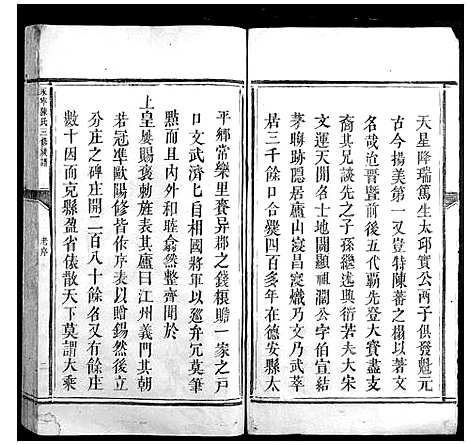 天星降瑞篤生太邱實公丙子俱發魁元
古今揚美第一又豈特陳蕃之榻以文
名哉迨晉暨前後五代覇先登大寶盡支
裔其兄談先之子孫繼述興衛若夫大宋
文運天開名士地闢顯祖瀾公字伯宣
茅聯跡隱居廬山嵩寖熾乃文乃武萃
居三千餘口合㸑四百多年在德安縣太
平鄉常樂里賫异郡之錢糧贍一家之戸
口文武濟匕自相國將軍以廹弁冗莫筆
㸃而且内外和睦翕然整齊聞於
上皇屢賜褒勅旌表其廬曰江州義門其朝
若冠凖歐陽修皆作詩以贈錫然後立
分庄之碑庄開二百八十餘名又有餘庄
數十因而克縣盈省俵散天下莫謂大乘
陳氏三修族譜
老序
二